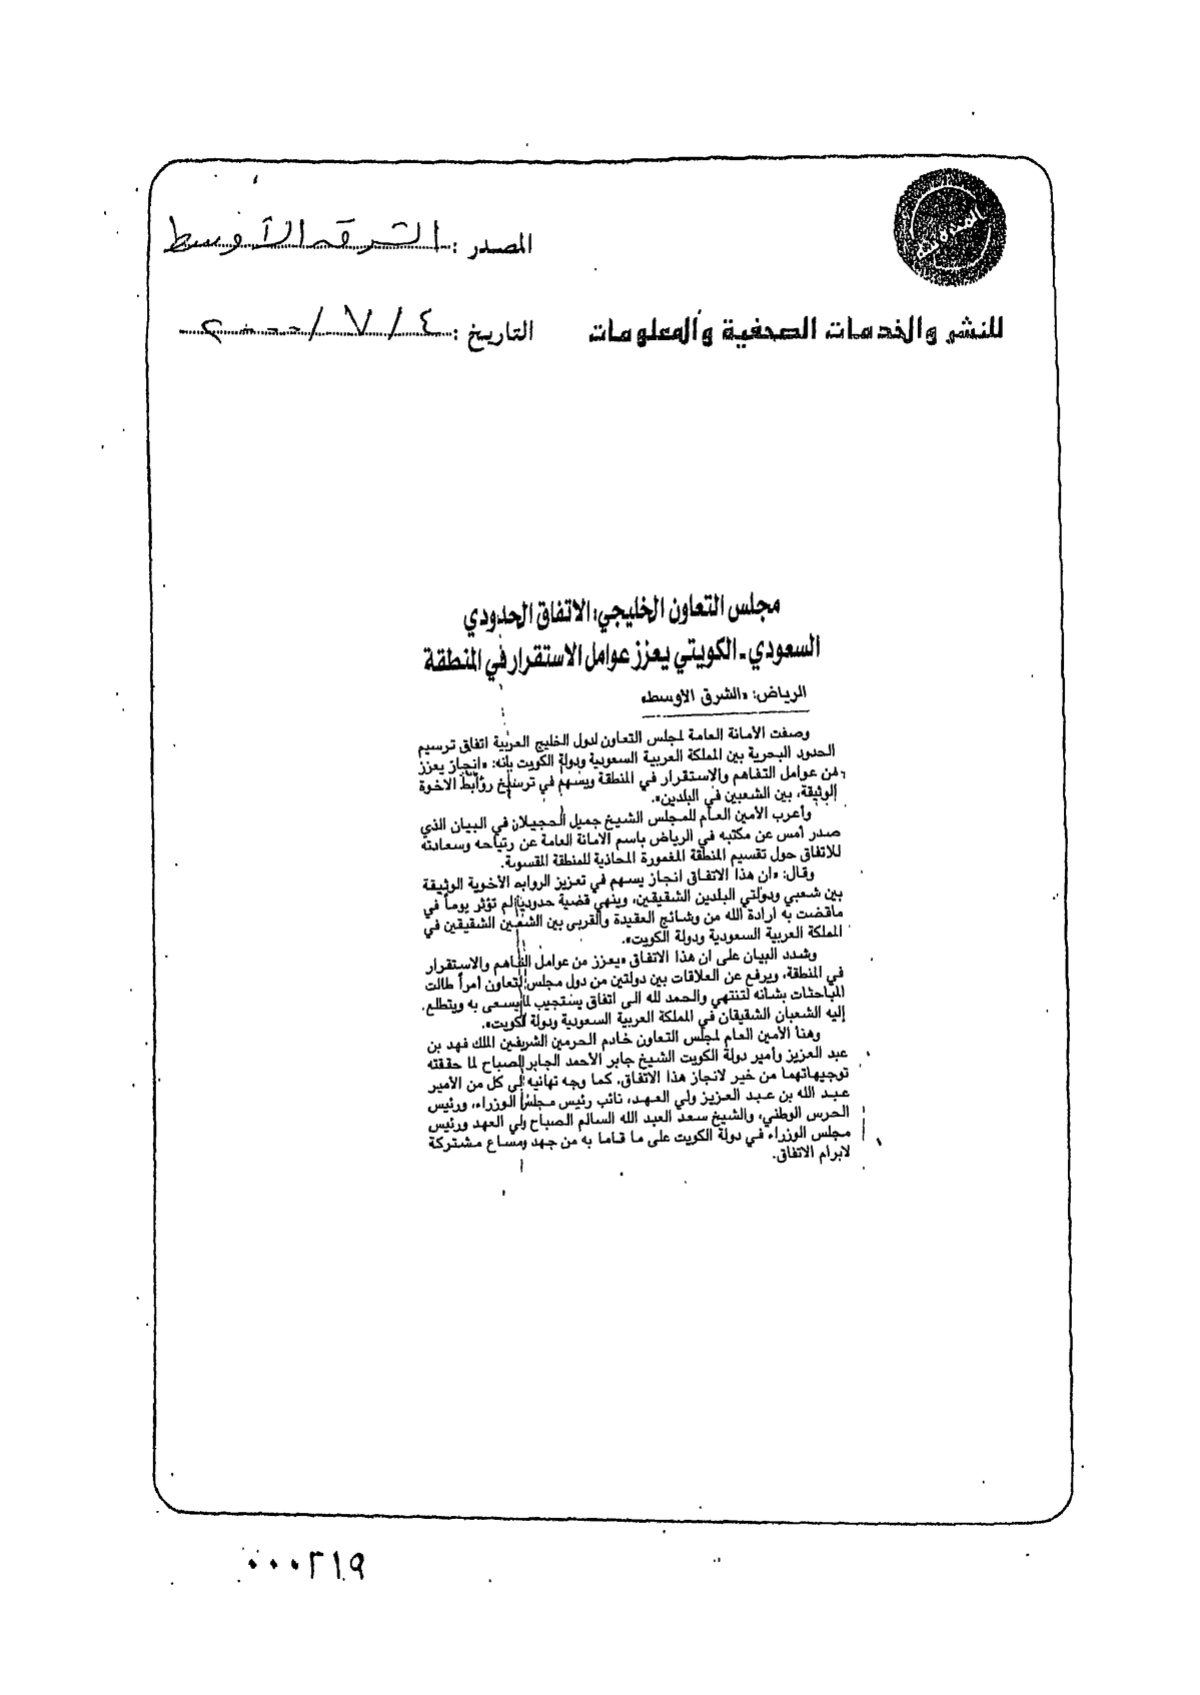 المصدر : الشرق الأوسط
للنشر والخدمات الصحفية والمعلومات
التاريخ : ٤ / ٧ / ٢٠٠٠
مجلس التعاون الخليجي: الاتفاق الحدودي
السعودي - الكويتي يعزز عوامل الاستقرار في المنطقة
الرياض: «الشرق الاوسط»
وصفت الأمانة العامة لمجلس التعاون لدول الخليج العربية اتفاق ترسيم
الحدود البحرية بين المملكة العربية السعودية ودولة الكويت بانه: «انجاز يعزز
من عوامل التفاهم والاستقرار في المنطقة ويسهم في ترسيخ روابط الاخوة
الوثيقة، بين الشعبين في البلدين».
وأعرب الأمين العام للمجلس الشيخ جميل الحجيلان في البيان الذي
صدر أمس عن مكتبه في الرياض باسم الامانة العامة عن رتياحه وسعادته
للاتفاق حول تقسيم المنطقة المغمورة المحاذية للمنطقة المقسومة.
وقال: «ان هذا الاتفاق انجاز يسهم في تعزيز الروابط الأخوية الوثيقة
بين شعبي ودولتي البلدين الشقيقين، وينهي قضية حدودية لم تؤثر يوماً في
ماقضت به ارادة الله من وشائج العقيدة والقربى بين الشعبين الشقيقين في
المملكة العربية السعودية ودولة الكويت».
وشدد البيان على ان هذا الاتفاق «يعزز من عوامل التفاهم والاستقرار
في المنطقة، ويرفع عن العلاقات بين دولتين من دول مجلس التعاون امراً طالت
المباحثات بشانه لتنتهي والحمد لله الى اتفاق يستجيب لما يسعى به ويتطلع
إليه الشعبان الشقيقان في المملكة العربية السعودية ودولة الكويت».
وهنأ الأمين العام لمجلس التعاون خادم الحرمين الشريفين الملك فهد بن
عبد العزيز وأمير دولة الكويت الشيخ جابر الأحمد الجابر الصباح لما حققته
توجيهاتهما من خير لانجاز هذا الاتفاق. كما وجه تهانيه إلى كل من الأمير
عبد الله بن عبد العزيز ولي العهد، نائب رئيس مجلس الوزراء، ورئيس
الحرس الوطني، والشيخ سعد العبد الله السالم الصباح ولي العهد ورئيس
مجلس الوزراء في دولة الكويت على ما قاما به من جهد ومساع مشتركة
لابرام الاتفاق.
٠٠٠٢١٩